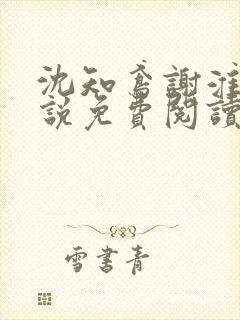 沈知鳶謝淮
説免費閱讀
雪書青